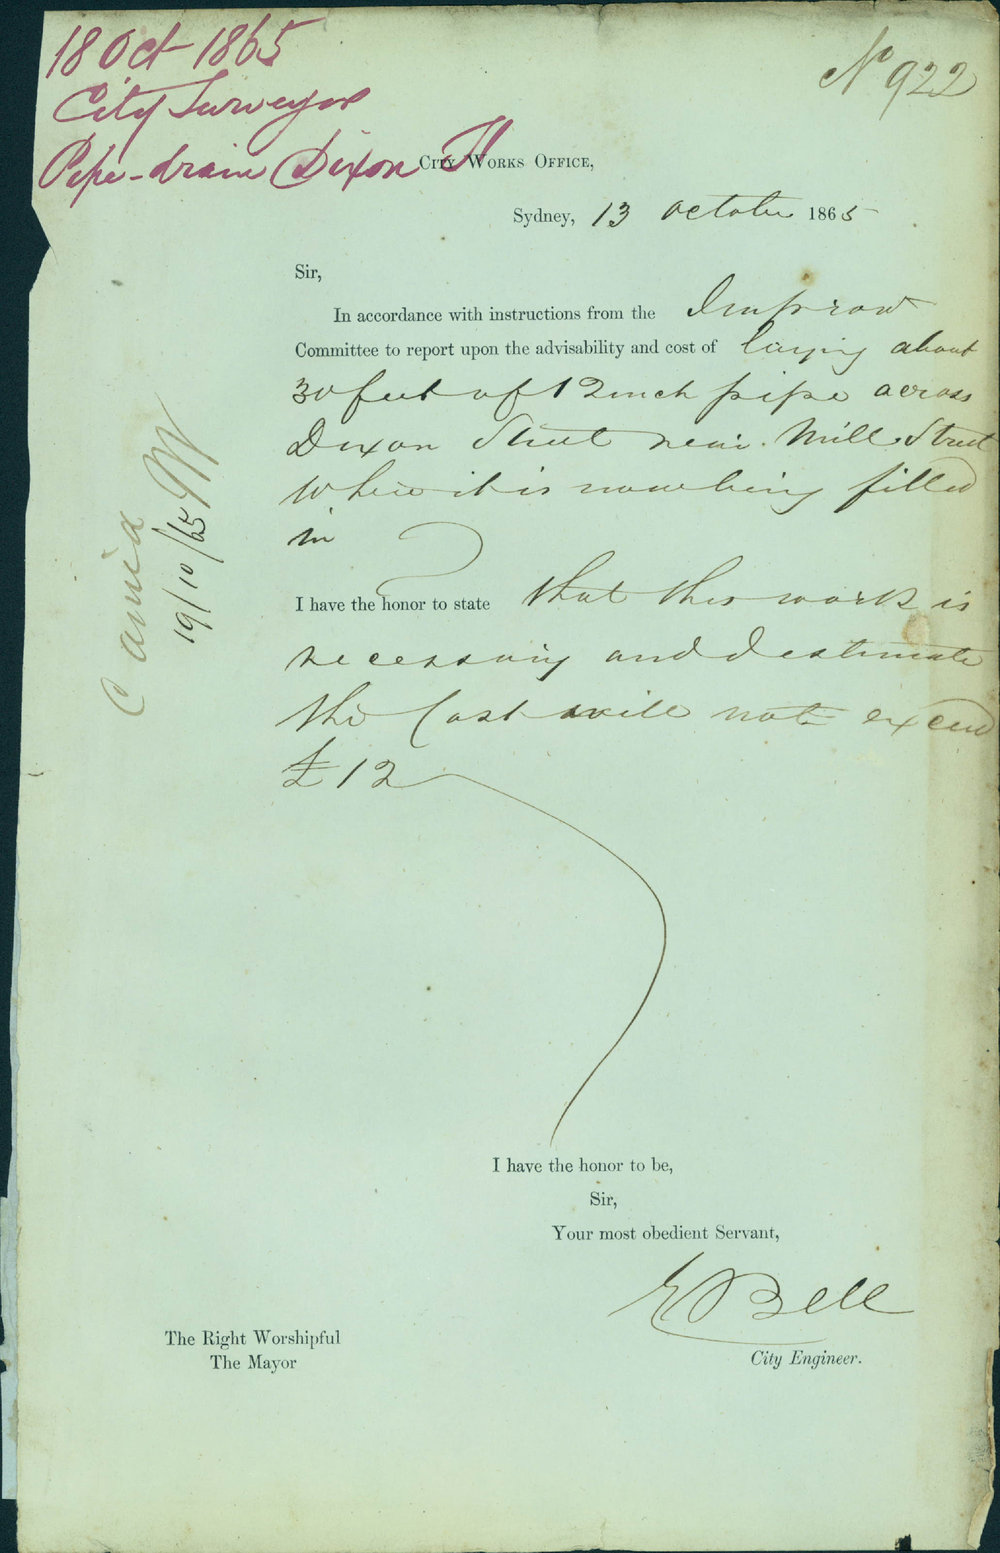 18 Oct 1865
City Surveyor
Pipe-drain Dixon St
No 922
City Works Office,
Sydney, 13 October 1865
Sir,
In accordance with instructions from the Improvt
Committee to report upon the advisability and cost of laying about
30 feet of 12 inch pipe across
Dixon Street near Mill Street
where it is now being filled
in
I have the honor to state that this work is
necessary and I estimate
the Cost will not exceed
£12
Carried
19/10/65
I have the honor to be,
Sir,
Your most obedient Servant,
E Bell
City Engineer.
The Right Worshipful
The Mayor